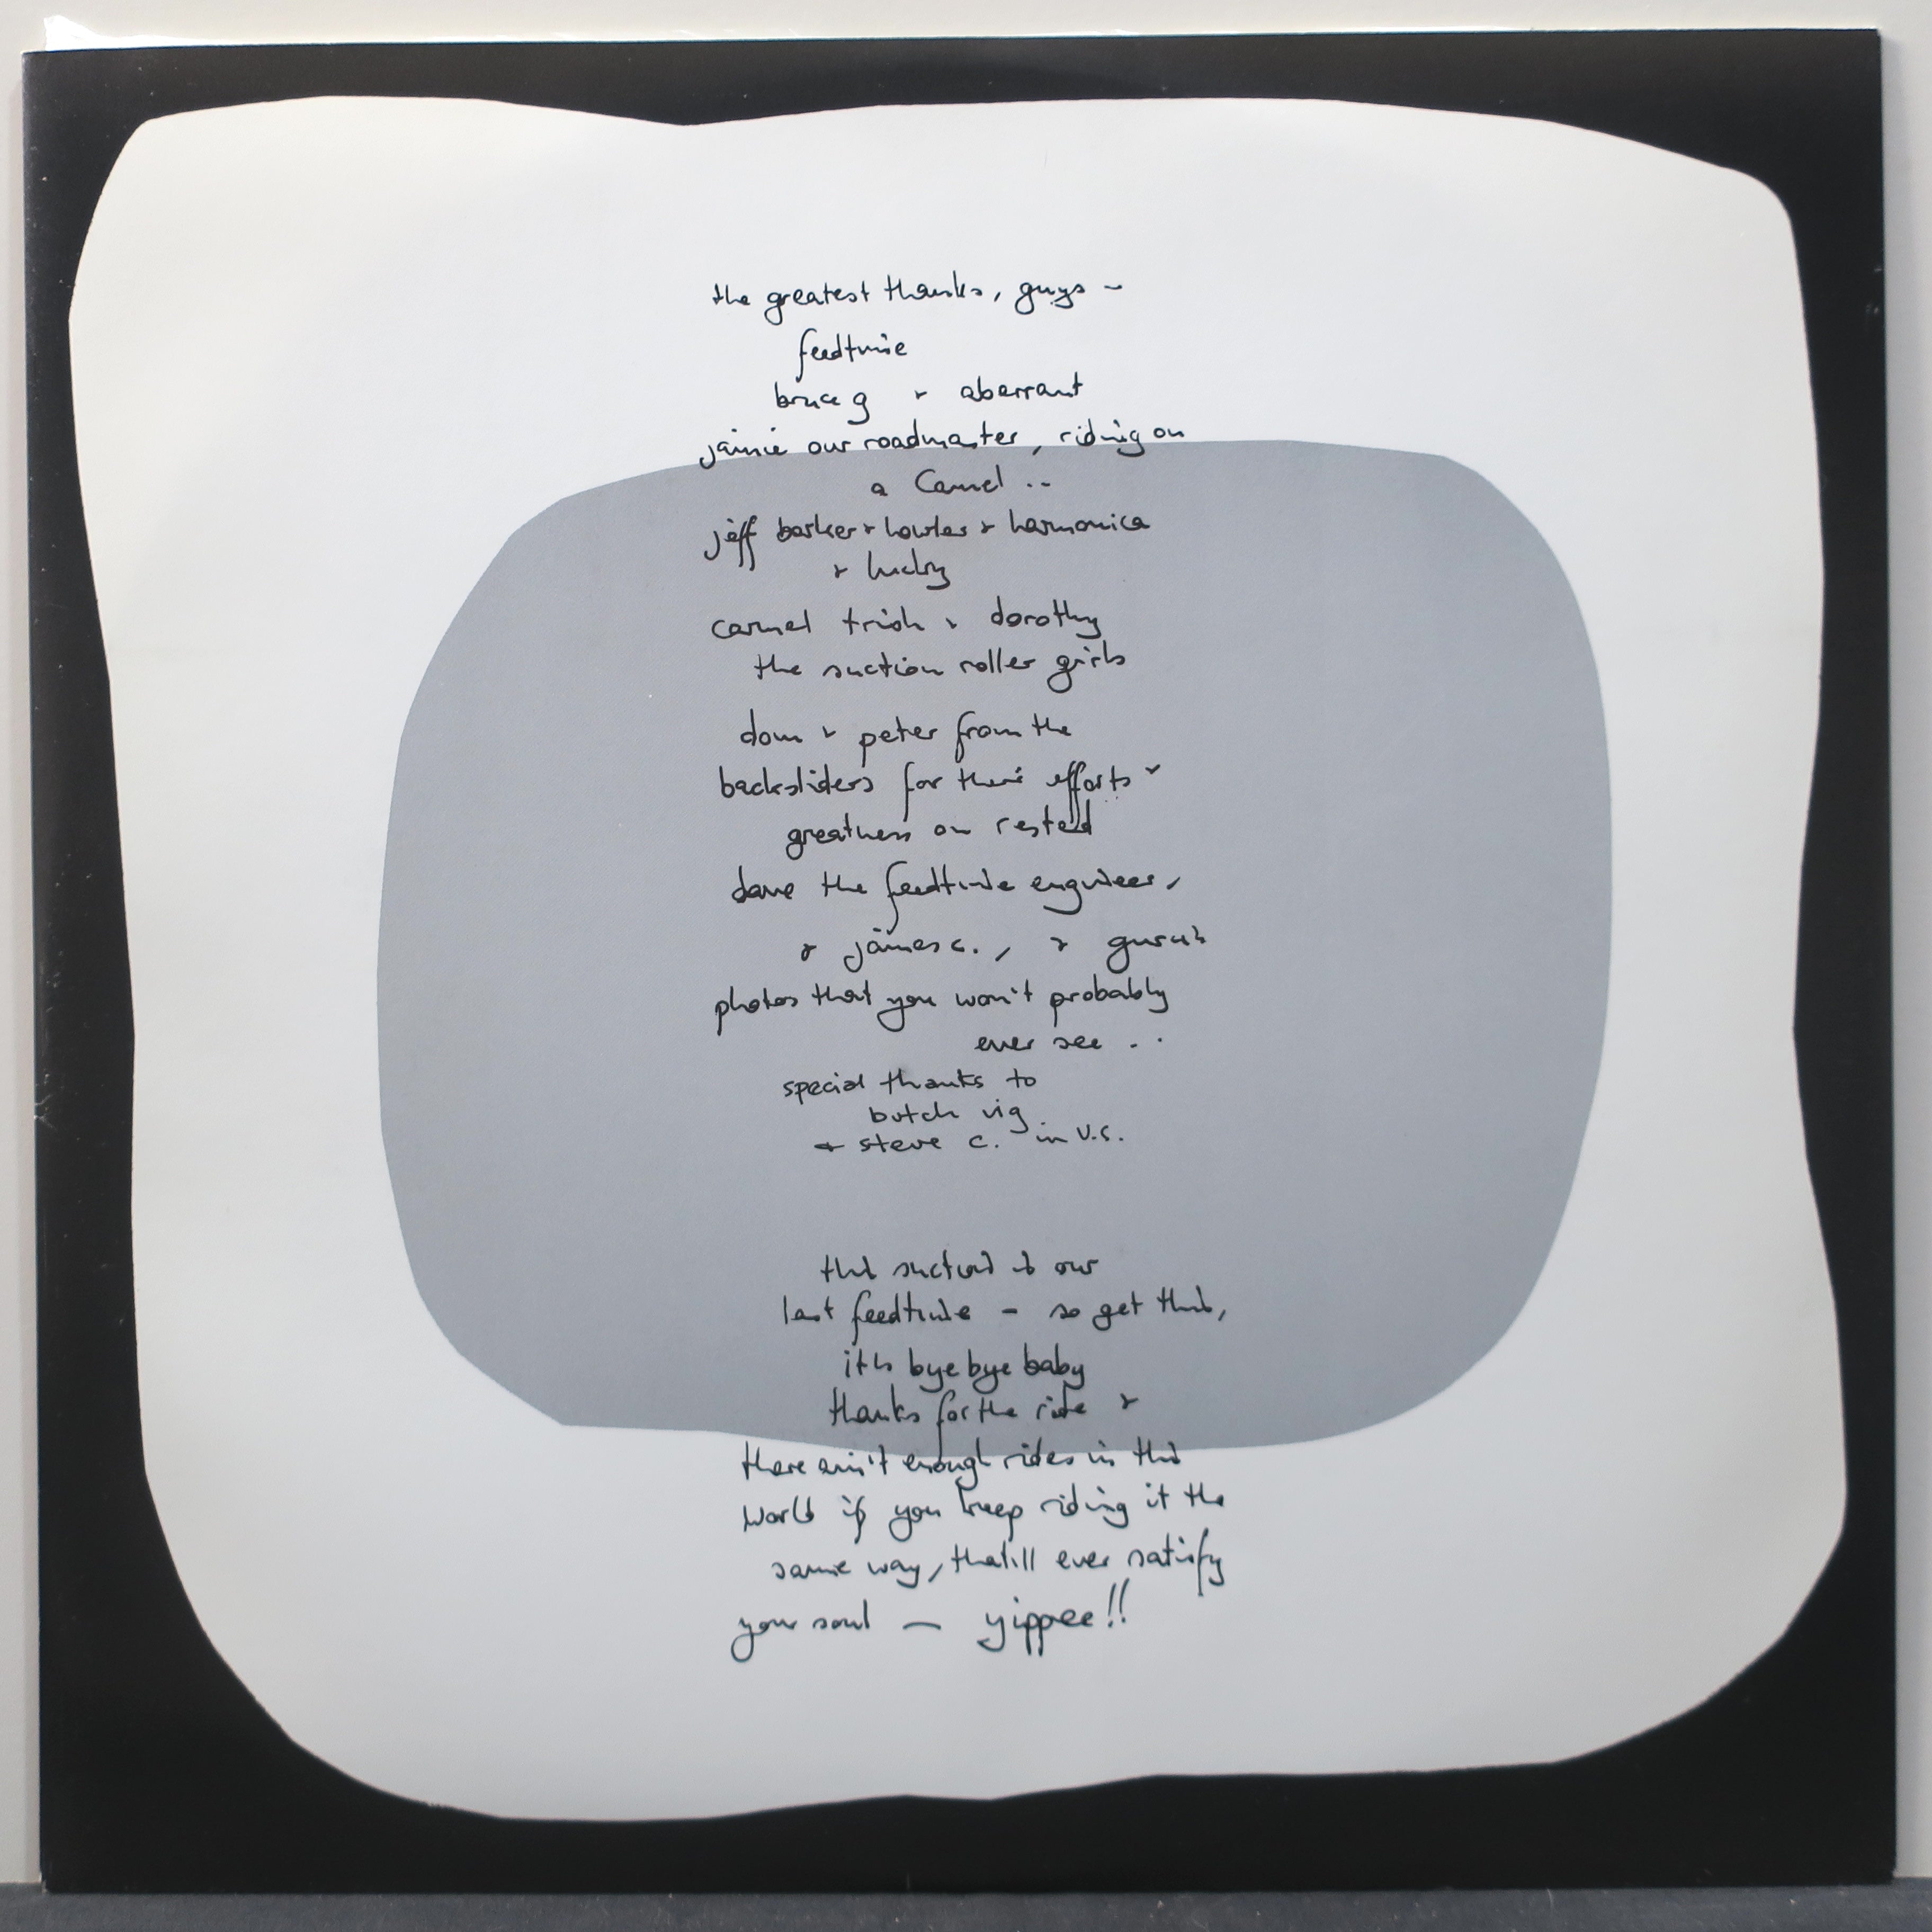 the greatest thanks, guys –
feedtime
bruce g & aberrant
jaimie our roadmaster, riding on
a Camel ..
jeff barker & howler & harmonica
& lucky
carmel trish & dorothy
the suction roller girls
dom & peter from the
backsliders for their efforts &
greatness on rested
dave the feedtime engineer,
& james c., &
photos that you won't probably
ever see ..
special thanks to
butch vig
& steve c. in U.S.
this suction is our
last feedtime – so get this,
it's bye bye baby
thanks for the ride &
there ain't enough rides in this
world if you keep riding it the
same way, that'll ever satisfy
your soul — yippee!!